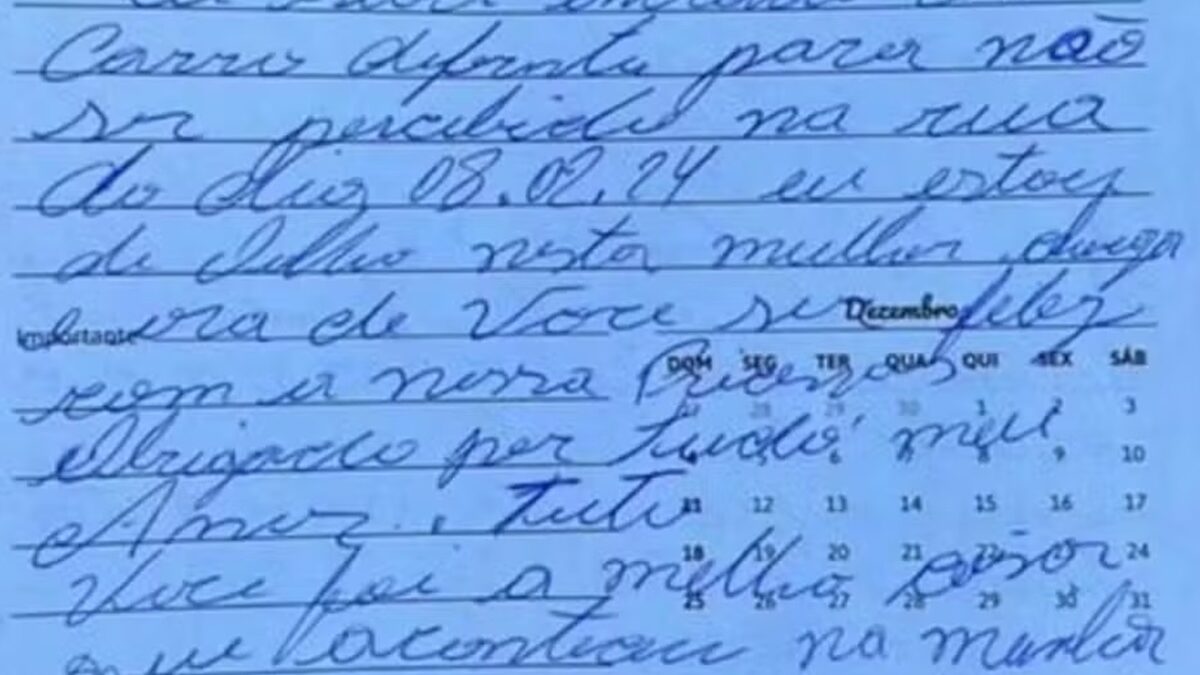 Carro diferente para não
ser percebido na rua
do dia 08.02.24 eu estou
de olho nesta mulher chega
ora de voce ser feliz
Dezembro
Importante
DOM SEG TER QUA QUI SEX SÁB
com a nossa Princesa
27 28 29 30 1 2 3
Obrigado por tudo meu
4 5 6 7 8 9 10
Amor. tuto
11 12 13 14 15 16 17
18 19 20 21 22 23 24
Voce foi a melhor coisa
25 26 27 28 29 30 31
que aconteceu na minha